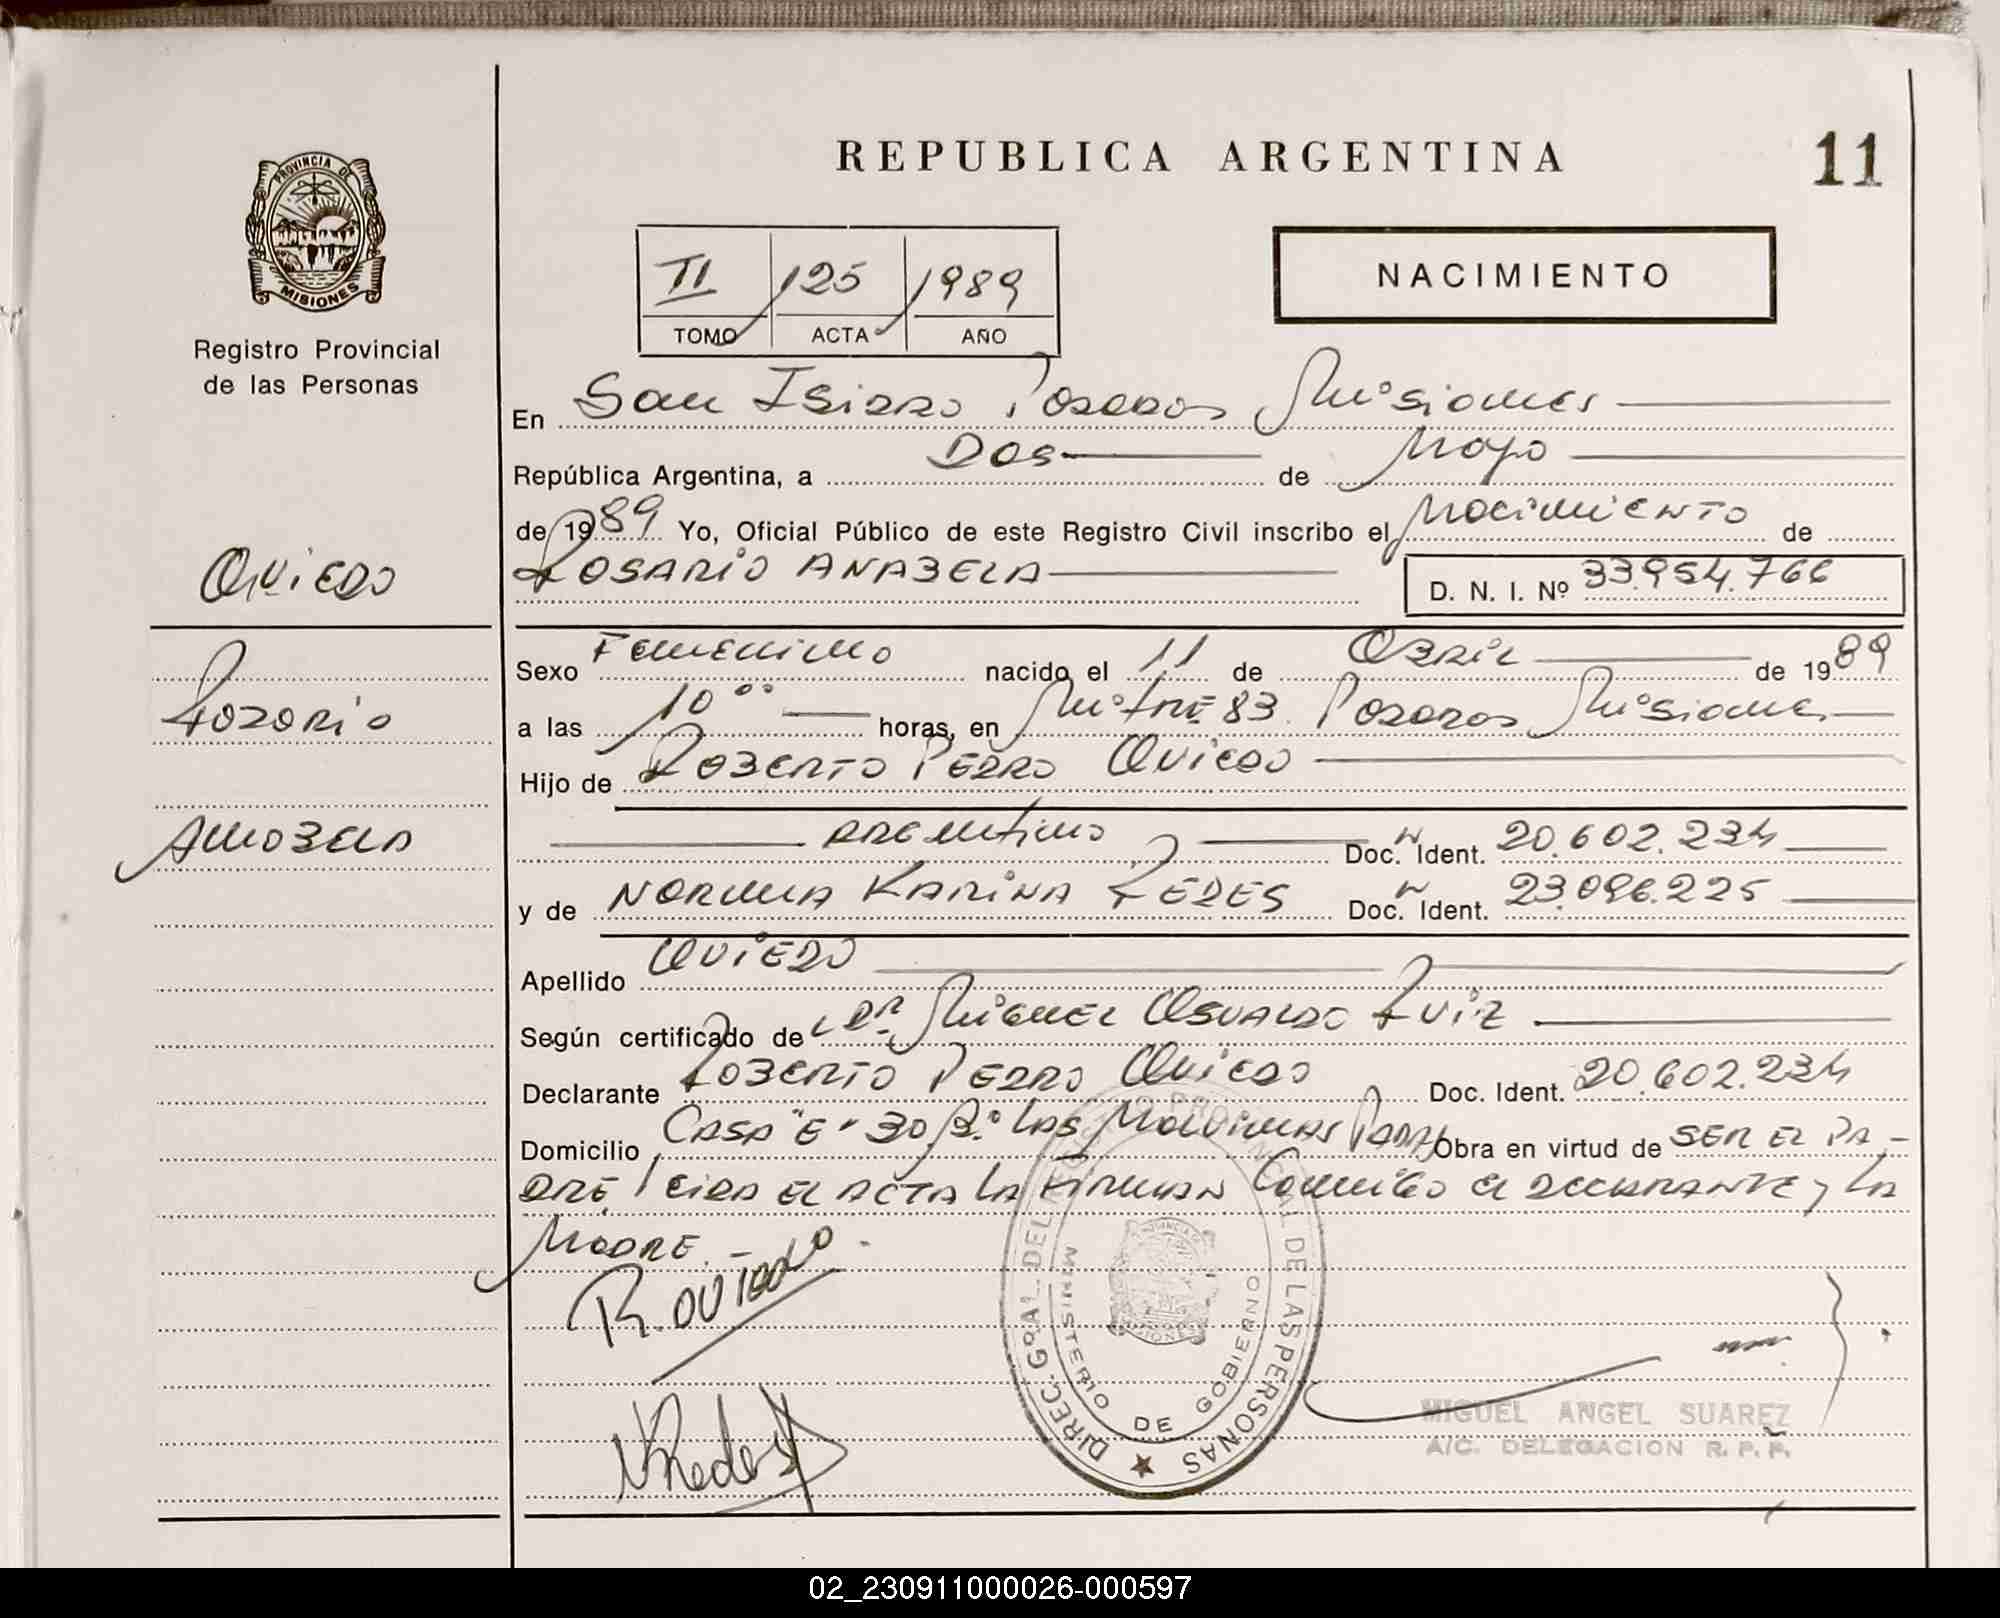 REPUBLICA ARGENTINA
11
PROVINCIA DE
MISIONES
Registro Provincial
de las Personas
II 125 1989
TOMO ACTA AÑO
NACIMIENTO
En San Isidro Posadas Misiones
República Argentina, a Dos de Mayo
de 1989 Yo, Oficial Público de este Registro Civil inscribo el Nacimiento de
Oviedo
ROSARIO ANABELA
D. N. I. Nº 33.954.766
Sexo Femenino nacido el 11 de Abril de 1989
Rosario
a las 10 00 horas, en Mitre 83 Posadas Misiones
Hijo de Roberto Pedro Oviedo
Anabela
argentino Doc. Ident. 20.602.234
y de NORMA KARINA REDES Doc. Ident. 23.096.225
Apellido OVIEDO
Según certificado de Dr Miguel Osvaldo Ruiz
Declarante Roberto Pedro Oviedo Doc. Ident. 20.602.234
Domicilio Casa "E" 30 Bº Las Malvinas Obra en virtud de SER EL PA-
DRE Leida el acta la firman Conmigo el declarante y la
Madre.-
R. OVIEDO
NRedes
DIREC. GRAL. DEL REGISTRO PROVINCIAL DE LAS PERSONAS
MINISTERIO DE GOBIERNO
MIGUEL ANGEL SUAREZ
A/C. DELEGACION R. P. P.
02_230911000026-000597